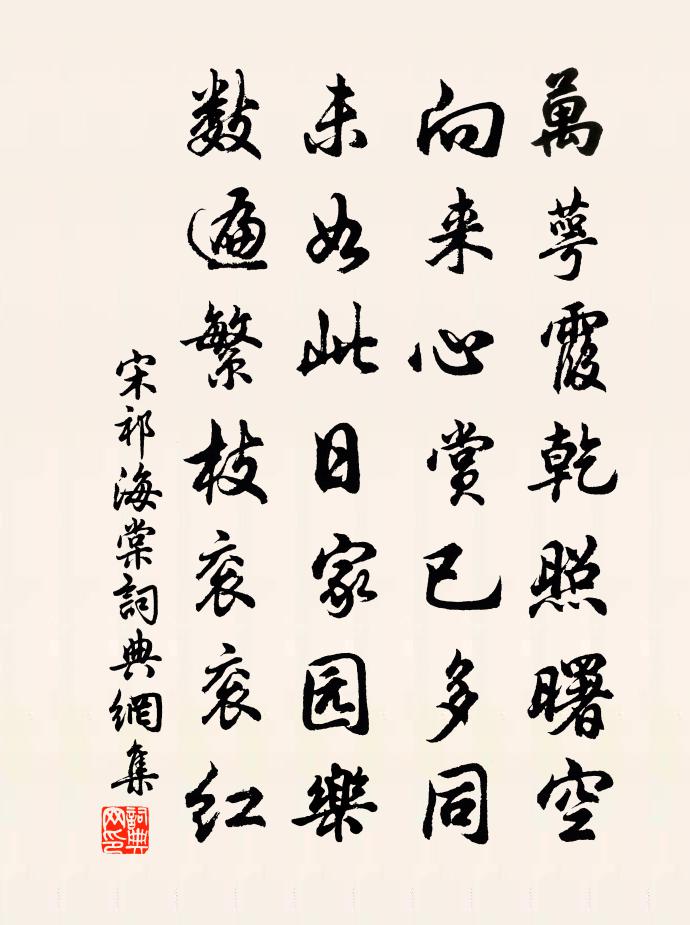 萬萼霞乾照曙空
向来心賞已多同
未如此日家园樂
数遍繁枝衮衮红
宋祁海棠詞典網集
詞典网印